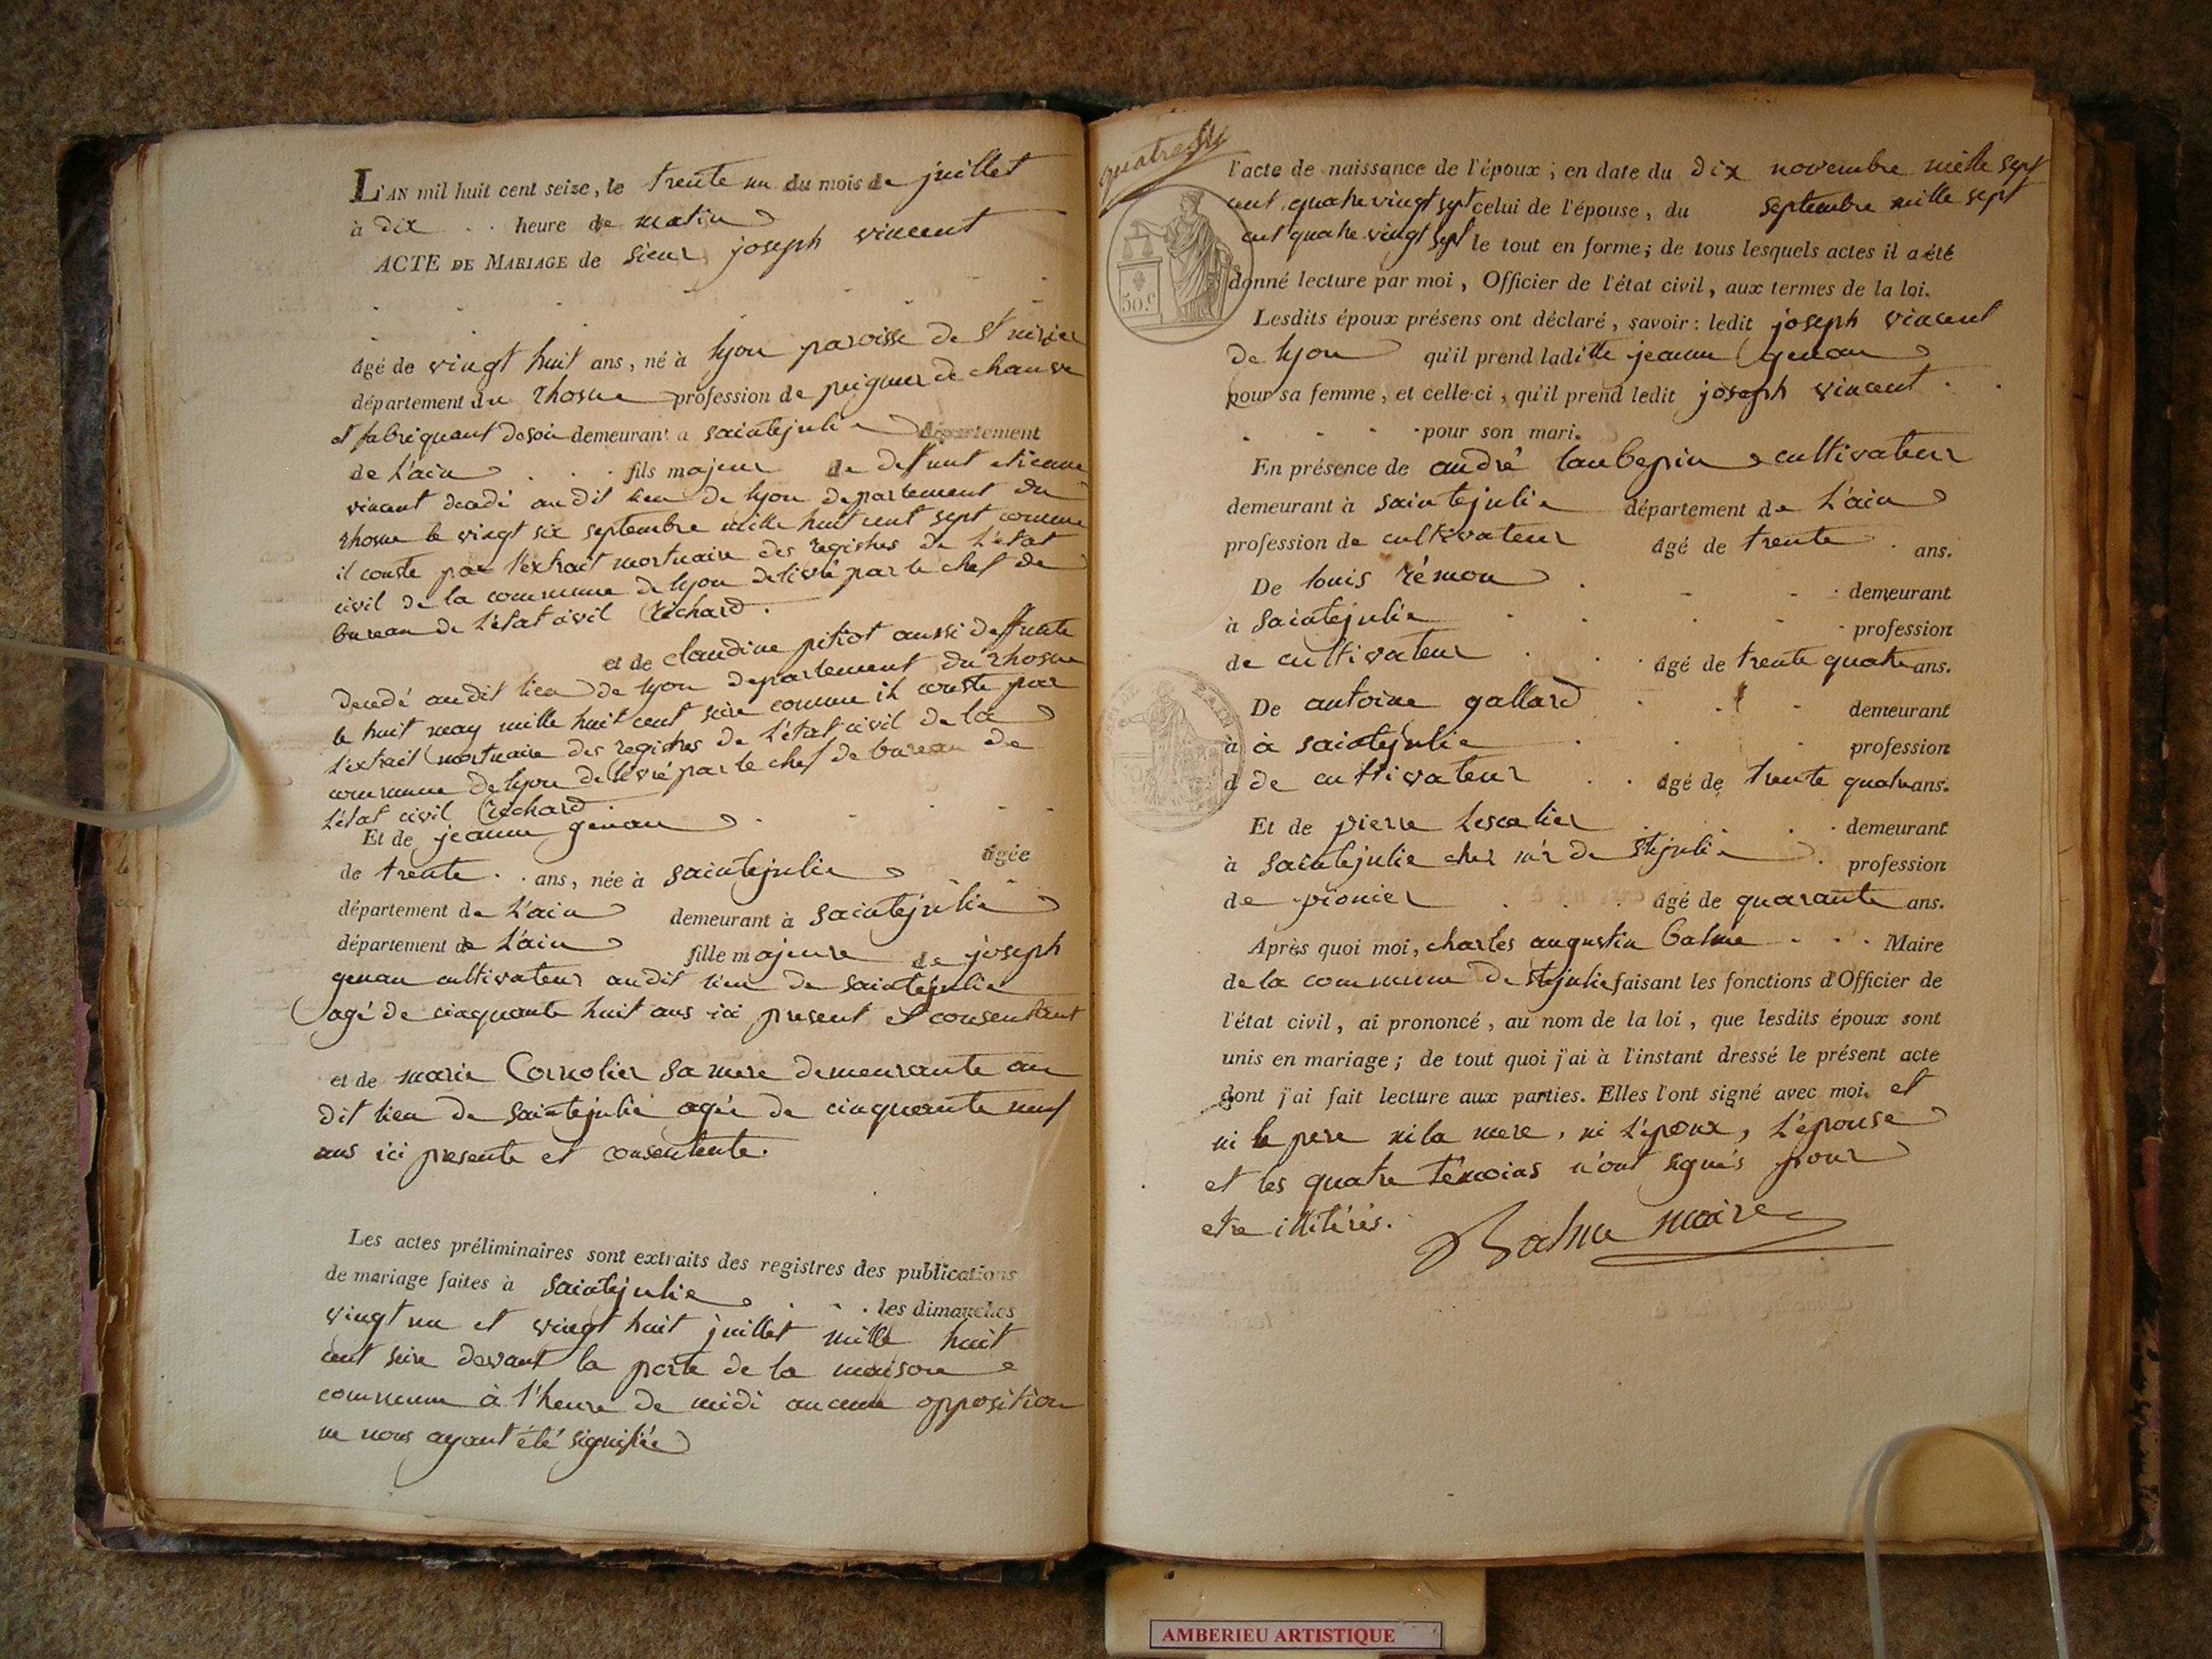 L'AN mil huit cent seize, le trente un du mois de juillet
à dix heure de matin
ACTE DE MARIAGE de sieur joseph vincent
âgé de vingt huit ans, né à lyon paroisse de st nizier
département du rhosne profession de peigneur de chanvre
et fabriquant de soie demeurant a saintejulie département
de l'ain fils majeur de deffunt etienne
vincent decedé audit lieu de lyon departement du
rhosne le vingt six septembre mille huit cent sept comme
il conste par l'extrait mortuaire des registres de l'état
civil de la commune de lyon delivré par le chef de
bureau de l'état civil richard.
et de claudine pitiot aussi deffunte
decedé audit lieu de lyon departement du rhosne
le huit may mille huit cent seize comme il conste par
l'extrait mortuaire des registres de l'état civil de la
commune de lyon delivré par le chef de bureau de
l'état civil richard.
Et de jeanne genau
âgée
de trente ans, née à saintejulie
département de l'ain demeurant à saintejulie
département de l'ain fille majeure de joseph
genau cultivateur audit lieu de saintejulie
agé de cinquante huit ans ici present et consentant
et de marie Cornolier sa mere demeurante au
dit lieu de saintejulie agée de cinquante neuf
ans ici presente et consentente.
Les actes préliminaires sont extraits des registres des publications
de mariage faites à saintejulie les dimanches
vingt un et vingt huit juillet mille huit
cent seize devant la porte de la maison
commune à l'heure de midi aucune opposition
ne nous ayant été signifiée
l'acte de naissance de l'époux; en date du dix novembre mille sept
cent quatre vingt sept celui de l'épouse, du septembre mille sept
cent quatre vingt sept le tout en forme; de tous lesquels actes il a été
donné lecture par moi, Officier de l'état civil, aux termes de la loi.
50.c
Lesdits époux présens ont déclaré, savoir: ledit joseph vincent
de lyon qu'il prend laditte jeanne genau
pour sa femme, et celle-ci, qu'il prend ledit joseph vincent
pour son mari.
En présence de andré laubepin cultivateur
demeurant à saintejulie département de l'ain
profession de cultivateur âgé de trente ans.
De louis rémon demeurant
à saintejulie profession
de cultivateur âgé de trente quatre ans.
De antoine gallard demeurant
à à saintejulie profession
d de cultivateur âgé de trente quatre ans.
Et de pierre lescalier demeurant
à saintejulie chez mr de stejulie profession
de pionier âgé de quarante ans.
Après quoi moi, charles augustin balme Maire
de la commune de stejulie faisant les fonctions d'Officier de
l'état civil, ai prononcé, au nom de la loi, que lesdits époux sont
unis en mariage; de tout quoi j'ai à l'instant dressé le présent acte
dont j'ai fait lecture aux parties. Elles l'ont signé avec moi. et
ni le pere ni la mere, ni l'époux, l'épouse
et les quatre témoins n'ont signés pour
etre illitérés.
Balme maire
AMBERIEU ARTISTIQUE